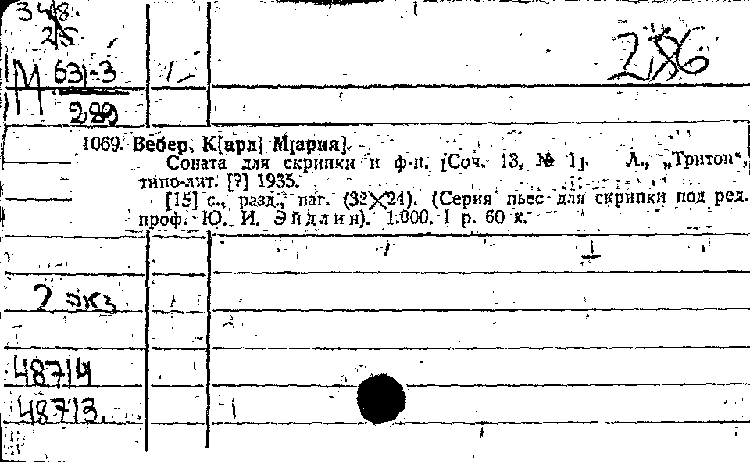 348.
2/5
286
М 631-3
289
1069. Вебер, К[арл] М[ария].
Соната для скрипки и ф-п. [Соч. 13, № 1]. Л., „Тритон“,
типо-лит. [?] 1935.
[15] с., разд., паг. (32×24). (Серия пьес для скрипки под ред.
проф. Ю. И. Эйдлин). 1.000. 1 р. 60 к.
2 экз
48714
48713.